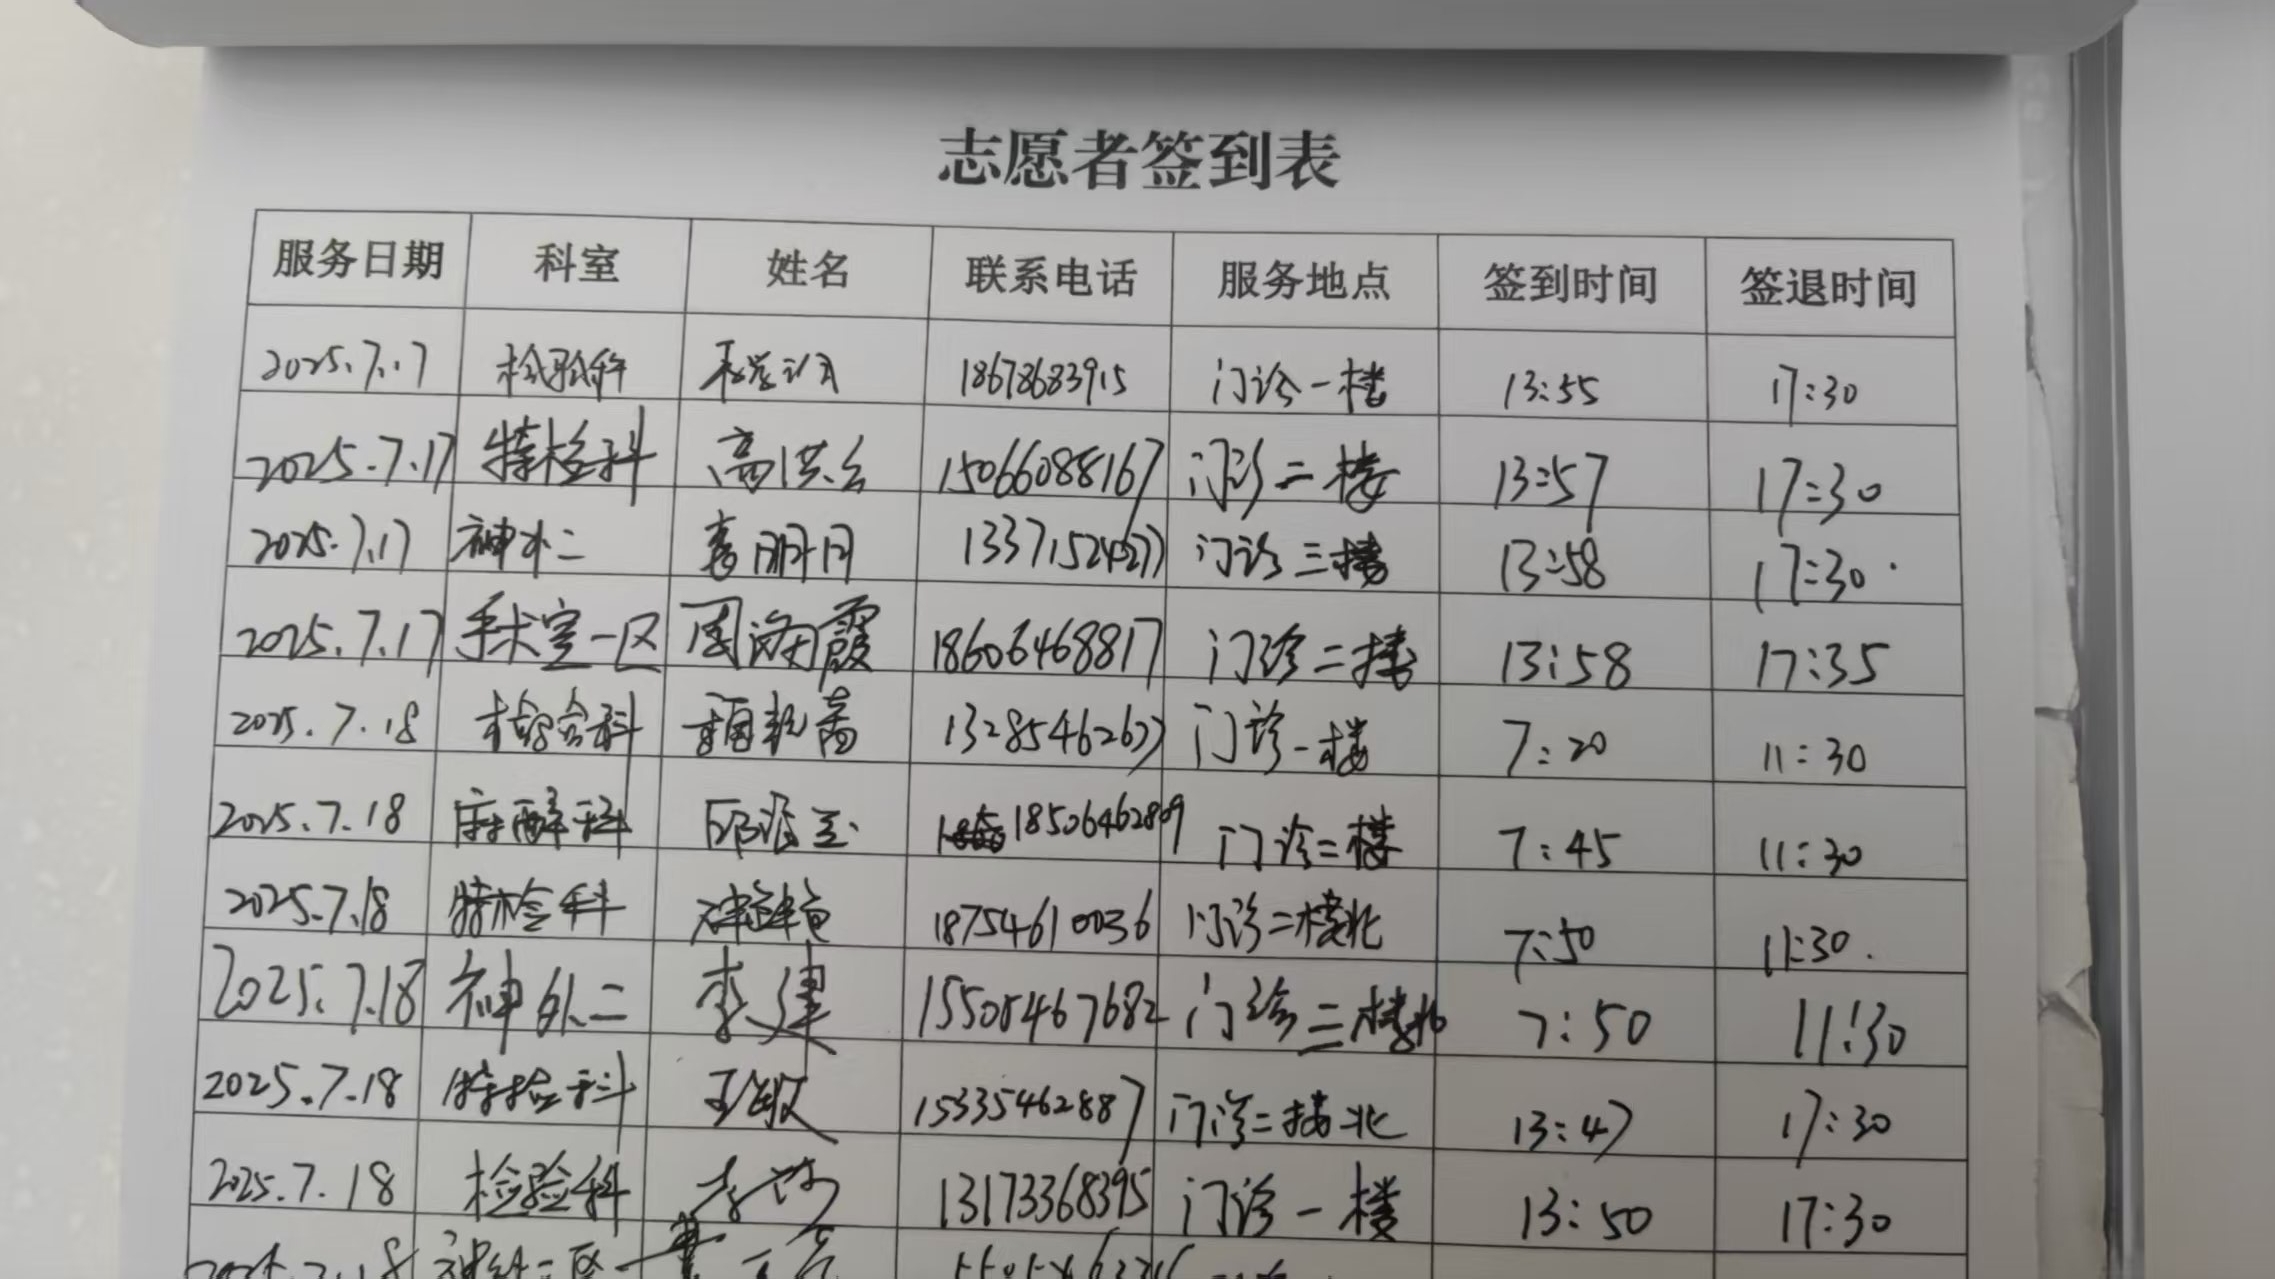 志愿者签到表
服务日期 科室 姓名 联系电话 服务地点 签到时间 签退时间
2025.7.17 检验科 18678683915 门诊一楼 13:55 17:30
2025.7.17 特检科 高洪云 15066088167 门诊二楼 13:57 17:30
2025.7.17 神外二 李丽月 门诊三楼 13:58 17:30
2025.7.17 手术室一区 周海霞 18606468817 门诊二楼 13:58 17:35
2025.7.18 检验科 13285462677 门诊一楼 7:20 11:30
2025.7.18 麻醉科 18506462809 门诊二楼 7:45 11:30
2025.7.18 特检科 18754610036 门诊二楼北 7:50 11:30
2025.7.18 神外二 李建 15505467682 门诊三楼北 7:50 11:30
2025.7.18 特检科 王敏 15335462887 门诊二楼北 13:47 17:30
2025.7.18 检验科 13173368395 门诊一楼 13:50 17:30
2025.7.18